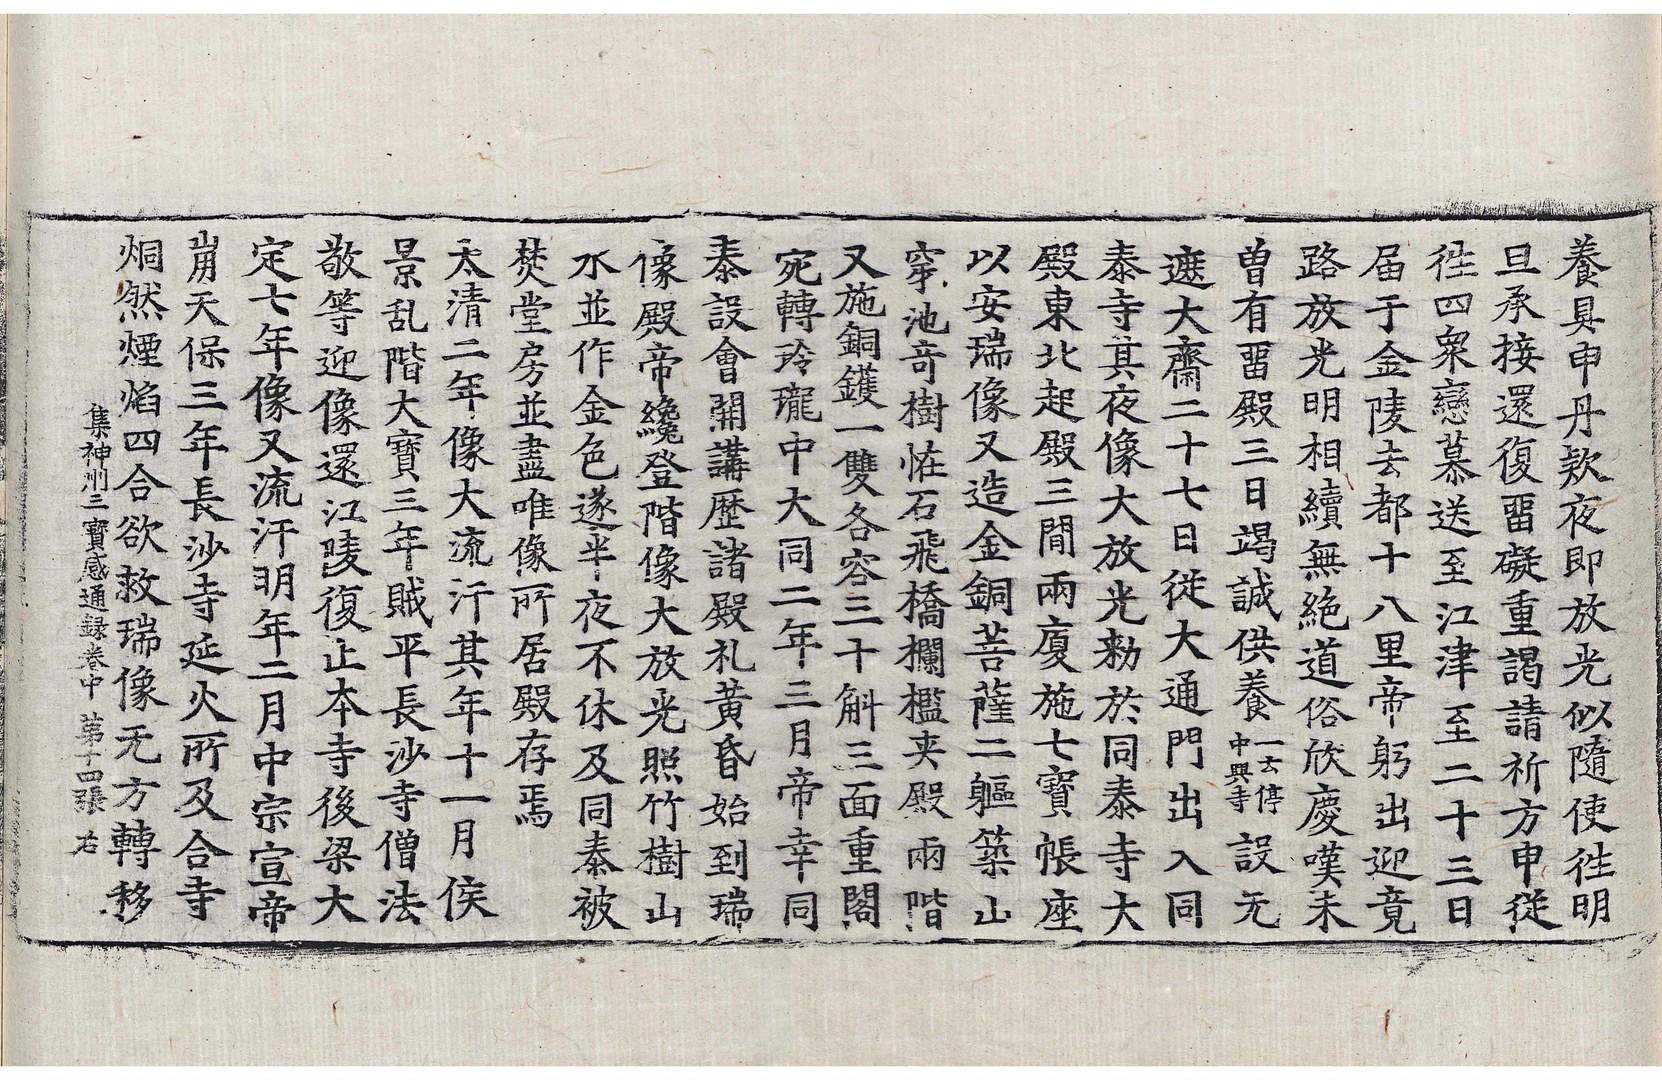 養具申丹款夜即放光似隨使徃明
旦承接還復畱礙重謁請祈方申從
徃四衆戀慕送至江津至二十三日
届于金陵去都十八里帝躬出迎竟
路放光明相續無絶道俗欣慶嘆未
曽有畱殿三日竭誠供養一云停中興寺設无
遮大齋二十七日從大通門出入同
泰寺其夜像大放光勑於同泰寺大
殿東北起殿三間兩廈施七寶帳座
以安瑞像又造金銅菩薩二軀築山
穿池竒樹恠石飛橋欄檻夾殿兩階
又施銅鑊一雙各容三十斛三面重閣
宛轉玲瓏中大同二年三月帝幸同
泰設會開講歷諸殿礼黃昏始到瑞
像殿帝纔登階像大放光照竹樹山
水並作金色遂半夜不休及同泰被
焚堂房並盡唯像所居殿存焉
太清二年像大流汗其年十一月侯
景乱階大寶三年賊平長沙寺僧法
敬等迎像還江陵復止本寺後梁大
定七年像又流汗明年二月中宗宣帝
崩天保三年長沙寺延火所及合寺
烔然煙焰四合欲救瑞像无方轉移
集神州三寶感通録卷中 第十四張 右